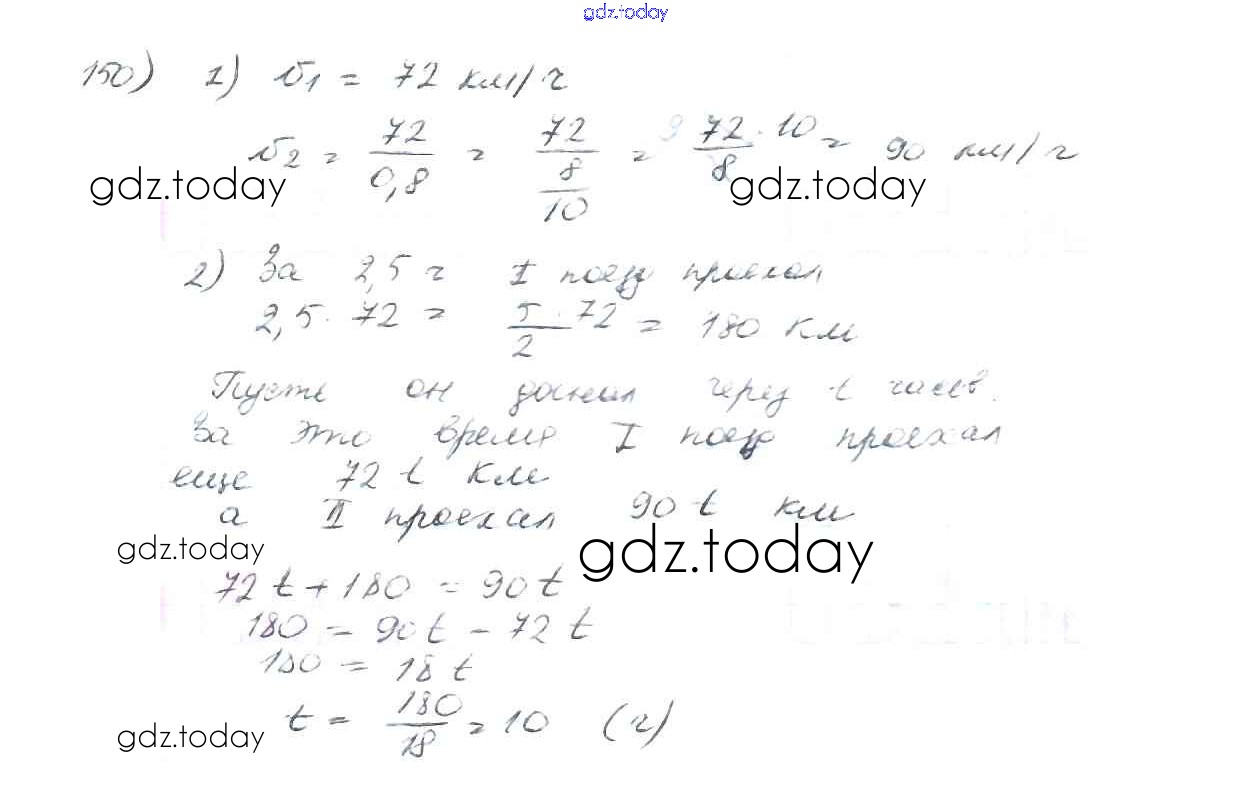 gdz.today
150) 1) v₁ = 72 км/ч
v₂ = 72/0,8 = 72/(8/10) = 9 72·10/8 = 90 км/ч
gdz.today gdz.today
2) За 2,5 ч I поезд проехал
2,5 · 72 = 5·72/2 = 180 км
Пусть он догнал через t часов.
За это время I поезд проехал
еще 72 t км
а II проехал 90 t км
gdz.today gdz.today
72 t + 180 = 90 t
180 = 90 t - 72 t
180 = 18 t
t = 180/18 = 10 (ч)
gdz.today